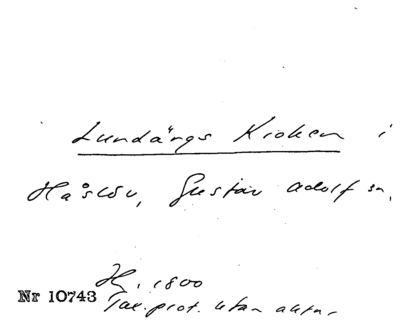 Lundängs Kroken i
Håslöv, Gustav Adolf sn.
H. 1800
Nr 10743
Tax. prot. utan aktnr